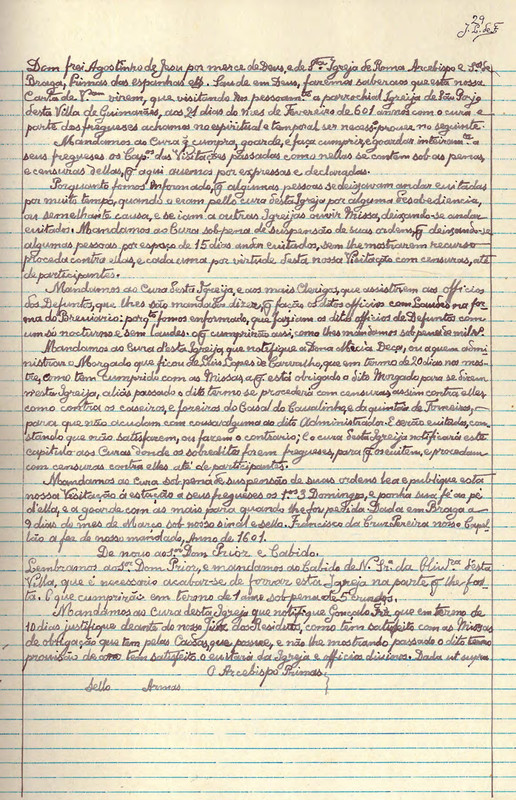 29
Dom frei Agostinho de Jesu por merce de Deus, e da Igreja de Roma Arcebispo e Sr de
Braga, Primas das espanhas etc. Saude em Deus, fazemos saber aos que esta nossa
Carta de virem, que visitando em pessoa a parrochial Igreja de São Payo
desta Villa de Guimarães, aos 21 dias do mes de Fevereiro de 601 annos com o cura e
parte dos fregueses achamos no espiritual e temporal ser necess. prover no seguinte.
Mandamos ao Cura q̃ cumpra, goarde, e faça cumprir, e goardar inteiram.te a
seus fregueses os Cap.os das Visitações passadas como nellas se contem sob as penas,
e censuras dellas, q̃ aqui avemos por expressas e declaradas.
Porquanto fomos informado, q̃ algumas pessoas se deixavam andar evitadas
por muito tempo, quando o eram pello cura desta Igreja por alguma desobediencia,
ou semelhante causa, e se iam a outras Igrejas ouvir Missa, deixando-se andar
evitados. Mandamos ao Cura sob pena de suspensão de suas ordens, q̃ deixando-se
algumas pessoas por espaço de 15 dias andar evitados, sem lhe mostrarem recurso
proceda contra ellas, e cada uma por virtude desta nossa Visitação com censuras, até
de participantes.
Mandamos ao Cura desta Igreija, e aos mais Clerigos, que assistirem aos officios
dos Defuntos, que lhes são mandados dizer, q̃ fação os ditos officios com Laudes na for
ma do Breviario: porq.to fomos enformado, que faziam os ditos officios de Defuntos com
um só nocturno e sem laudes. O q̃ cumprirão assi, como lhes mandamos sob pena de mil rs.
Mandamos ao Cura desta Igreija, que notifique a Dona Mecia Deça, ou a quem admi
nistrar o Morgado que ficou de Luis Lopes de Carvalho, que em termo de 20 dias nos mos-
tre, como tem cumprido com as Missas a q̃ está obrigado o dito Morgado para se dizerem
nesta Igreija, aliàs passado o dito termo se procederá com censuras assim contra elles
como contra os caseiros, e foreiros do Casal do Cavalinho, e da quinta de Fomeiros,
para que não acudam com cousa alguma ao dito Administrador. E serão evitados, con
stando que não satisfazem, ou fazem o contrario; E o cura desta Igreija notificará este
capitulo aos Curas donde os sobreditos forem fregueses, para q̃ os evitem, e procedam
com censuras contra elles até de participantes.
Mandamos ao Cura sob pena de suspensão de suas ordens lea e publique esta
nossa Visitação á estação a seus fregueses os 1.ros 3 Domingos, e ponha sua fé ao pé
d'ella, e a goarde com as mais para quando lhe for pedida. Dada em Braga a
9 dias do mes de Março sob nosso sinal e sello. Francisco da Cruz Pereira nosso Capel
lão a fez de nosso mandado, Anno de 1601.
De novo ao Sr. Dom Prior e Cabido.
Lembramos ao Sr. Dom. Prior, e mandamos ao Cabido de N. Sr.a da Oliv.ra desta
Villa, que é necessario acabar-se de forrar esta Igreja na parte q̃ lhe fal
ta. O que cumprirão em termo de 1 anno sob pena de 5 cruzados.
Mandamos ao Cura desta Igreija que notifique Gonçalo que em termo de
10 dias justifique deante do nosso dos Residuos, como tem satisfeito com as Missas
de obrigação que tem pelas Casas, que possue, e não lhe mostrando passado o dito termo
provisão de como tem satisfeito o evitará da Igreja e officios divinos. Dada ut supra
O Arcebispo Primas.
Sello Armas